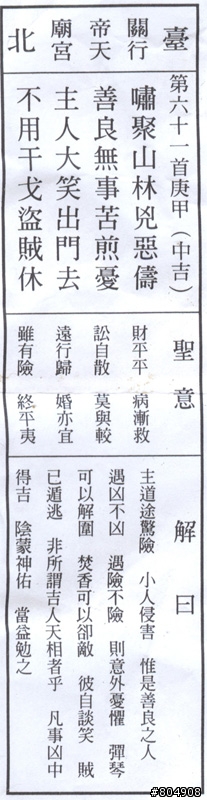 臺北
關帝廟
行天宮
第六十一首庚甲（中吉）
嘯聚山林兇惡儔
善良無事苦煎憂
主人大笑出門去
不用干戈盜賊休
聖意
財平平 病漸救
訟自散 莫與較
遠行歸 婚亦宜
雖有險 終平夷
解曰
主道途驚險 小人侵害 惟是善良之人
遇凶不凶 遇險不險 則意外憂懼 彈琴
可以解圍 焚香可以卻敵 彼自談笑 賊
已遁逃 非所謂吉人天相者乎 凡事凶中
得吉 陰蒙神佑 當益勉之
#804908